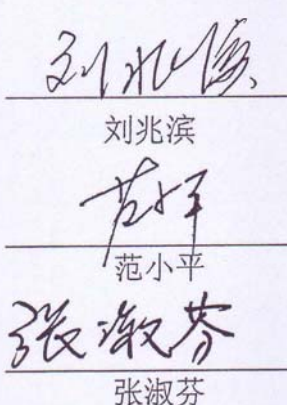 刘兆滨
刘兆滨
范小平
范小平
张淑芬
张淑芬